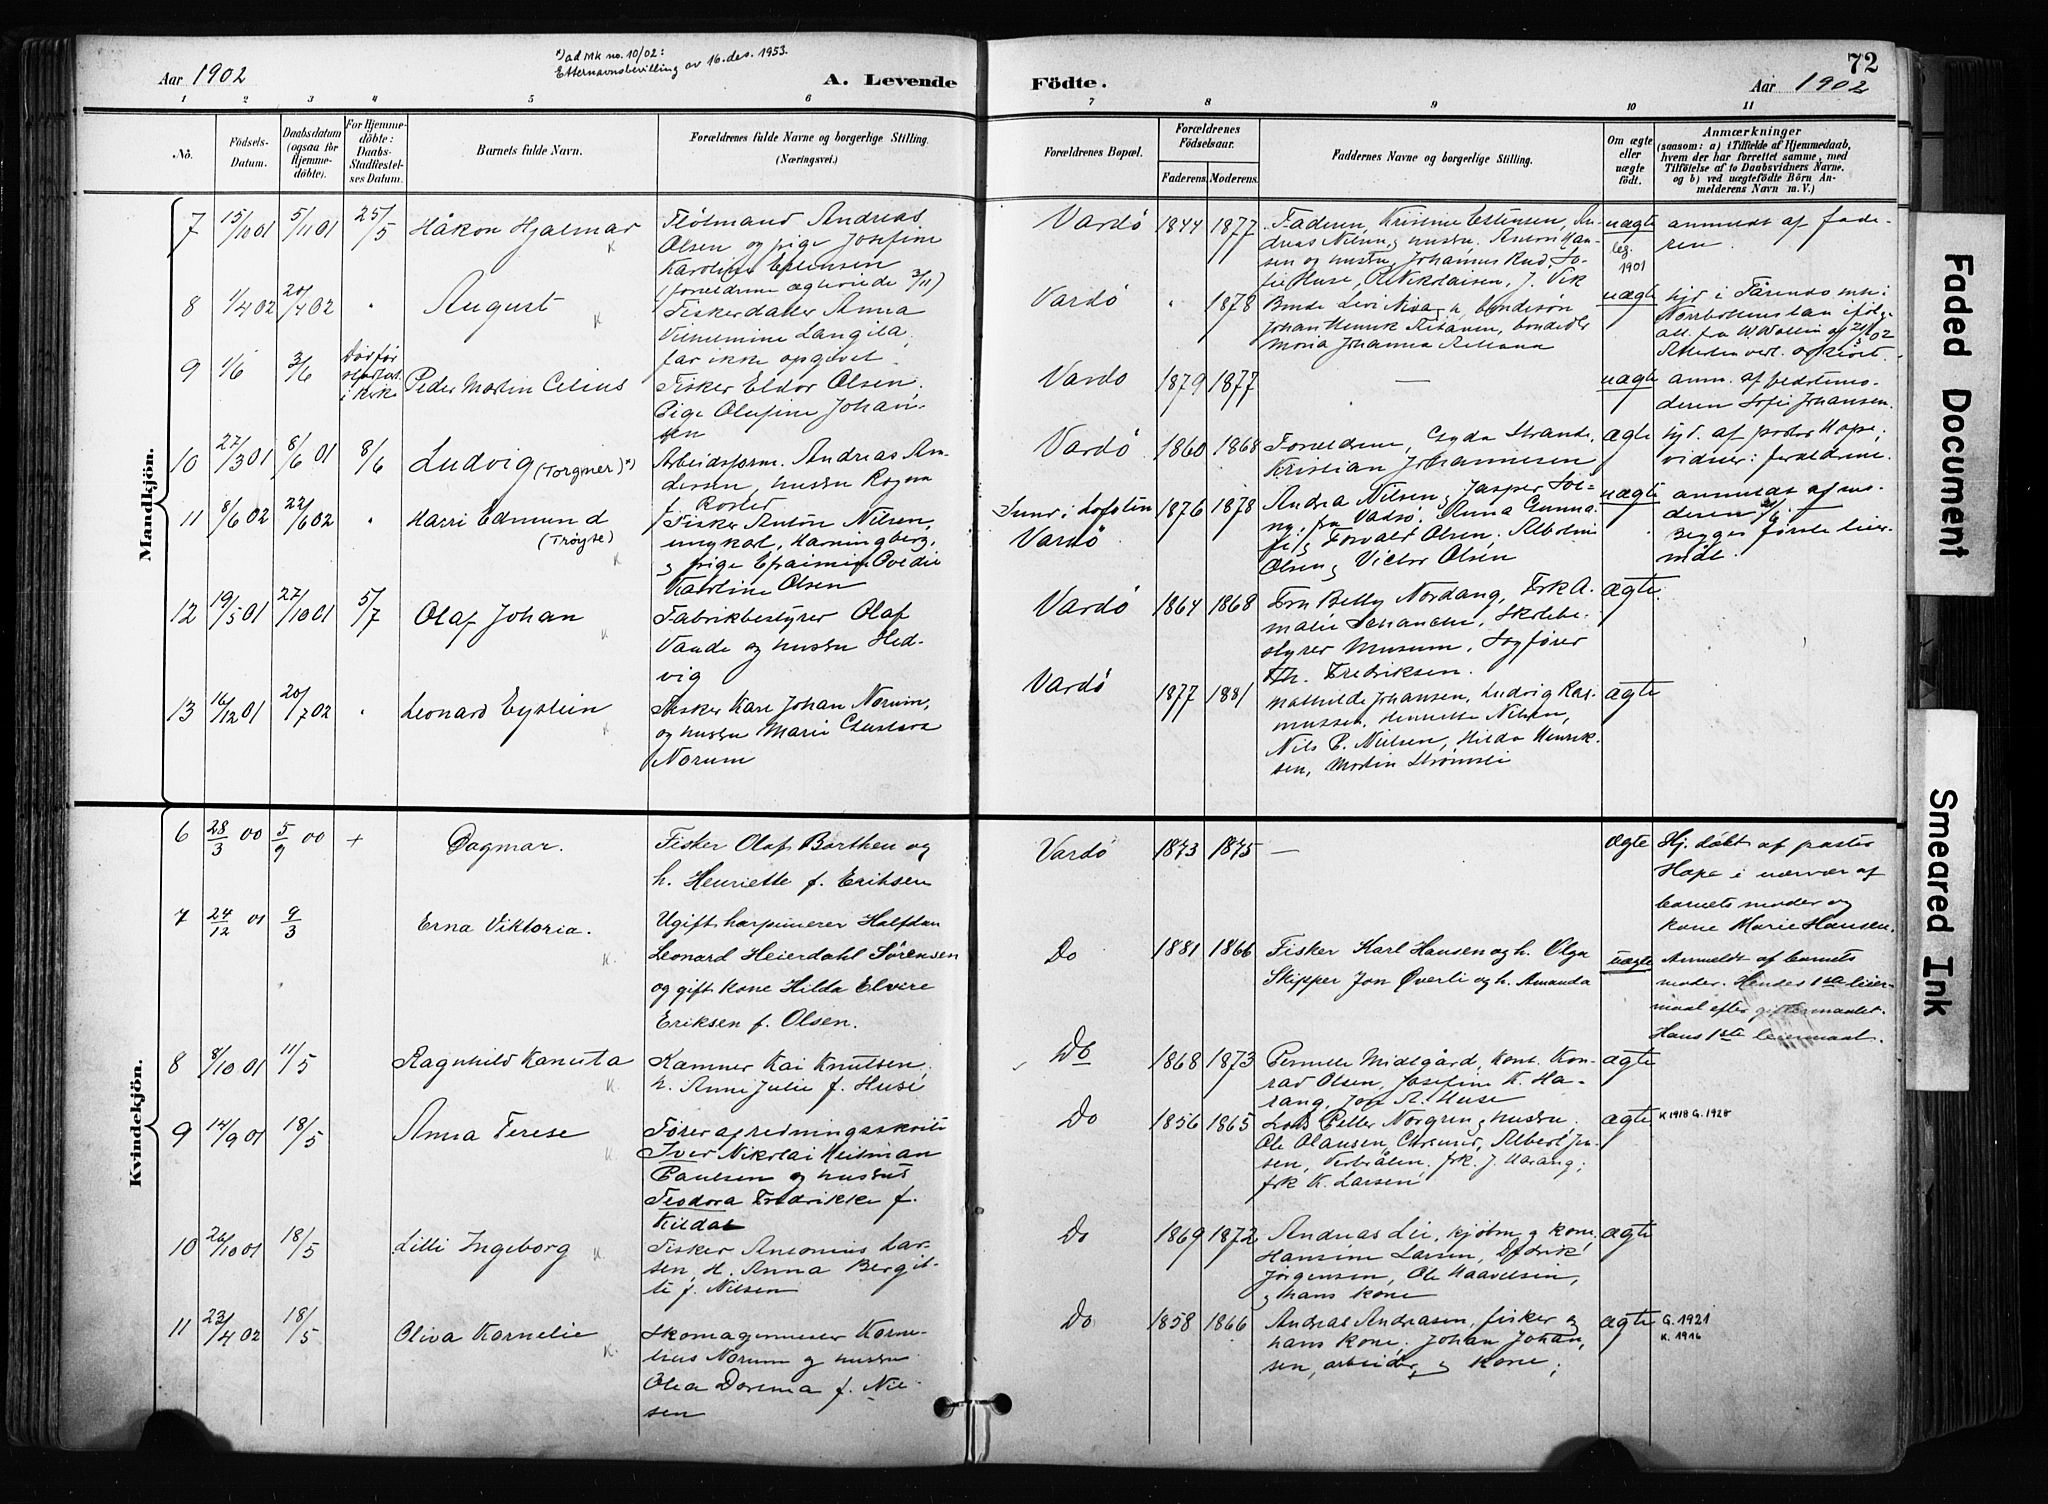 Aar 1902
*) ad Mk no. 10/02:
Etternavnsbevilling av 16. des. 1953.
A. Levende
Födte.
72
Aar 1902
1 2 3 4 5 6 7 8 9 10 11
No.
Födsels-
Datum.
Daabsdatum
(ogsaa for
Hjemme-
döbte).
For Hjemme-
döbte:
Daabs-
Stadfæstel-
ses Datum.
Barnets fulde Navn.
Forældrenes fulde Navne og borgerlige Stilling.
(Næringsvei.)
Forældrenes Bopæl.
Forældrenes
Födselsaar.
Faderens. Moderens.
Faddernes Navne og borgerlige Stilling.
Om ægte
eller
uægte
födt.
Anmærkninger
(saasom: a) i Tilfælde af Hjemmedaab,
hvem der har forrettet samme, med
Tilföielse af to Daabsvidners Navne.
og b) ved uægtefödte Börn An-
melderens Navn m. V.)
Mandkjön.
7 15/10 01 5/11 01 25/5 Håkon Hjalmar
Flötmand Andreas
Olsen og pige Josefine
Karoline Estensen
(forældrene ægteviede 3/11)
Vardö 1844 1877
Faderen, Kristine Estensen, An-
dreas Nilsen og hustru, Anton Han-
sen og hustru, Johannes Rud, So-
fie Huse, P. Nikolaisen, J. Vik
uægte
leg.
1901
anmeldt af fade-
ren
8 1/4 02 20/4 02 " August
Fiskerdatter Anna
Vilhelmine Langila,
far ikke opgivet
Vardö " 1878
Johan Henrik
Maria Johanna
uægte
9 1/6 3/6
Död för
i kirke
Peder Martin Celius
Fisker Eldor Olsen.
Pige Olufine Johan-
sen
Vardö 1879 1877 —
uægte
anm. af bedstemo-
deren Sofie Johansen.
10 27/3 01 8/6 01 8/6 Ludvig (Torgmer)*)
Arbeidsform. Andreas An-
dersen, hustru Ragna
f. Rosted
Vardö 1860 1868
Forældrene, Gyda Strande,
Kristian Johannesen
ægte
hjd. af pastor Hope;
vidner: forældrene.
11 8/6 02 22/6 02 " Harri Edmund
(Trøyte)
Fisker Anton Nilsen,
ungkarl, Havningberg,
og pige Efraimine Ovedie
Karoline Olsen
Sund i Lofoten
Vardö
1876 1878
Andrea Nilsen, Jasper Sol-
fra Vadsö, Anna Gunna-
Torvald Olsen, Albertine
Olsen og Victor Olsen
uægte
anmeldt af mo-
deren 21/6
Begges förste leier-
mål.
12 19/5 01 27/10 01 5/7 Olaf Johan
Fabrikbestyrer Olaf
Vaade og hustru Hed-
vig
Vardö 1864 1868
Fru Betty Nordang, Frk A-
malie Schanche, Skolebe-
styrer Museum, Sagförer
Th. Fredriksen.
ægte.
13 16/12 01 20/7 02 " Leonard Eystein
Fisker Karl Johan Norum,
og hustru Marie Gustava
Norum
Vardö 1877 1881
Mathilde Johansen, Ludvig Ras-
mussen, Henriette Nilsen,
Nils P. Nielsen, Hilda Henrik-
sen, Martin Strömsli
ægte
Kvindekjön.
6 28/3 00 5/9 00 + Dagmar.
Fisker Olaf Barthen og
h. Henriette f. Eriksen
Vardö 1873 1875 —
Ægte
Hj. döbt af pastor
Hope i nærvær af
barnets moder og
kone Marie Hansen.
7 24/12 01 9/3 Erna Viktoria.
Ugift harpunerer Halfdan
Leonard Heierdahl Sörensen
og gift kone Hilda Elvire
Eriksen f. Olsen.
Do 1881 1866
Fisker Karl Hansen og h. Olga
Skipper Jon Øverli og h. Amanda
uægte
Anmeldt af barnets
moder. Hendes 1ste leier-
maal efter giftermaalet.
Hans 1ste leiermaal.
8 8/10 01 11/5 Ragnhild Kanuta
Kæmner Kai Knutsen,
h. Anne Julie f. Huse
Do 1868 1873
Pernille Midlgård, Kons. Kon-
rad Olsen, Josefine K. Ha-
rang, Jon A. Huse
ægte
9 14/9 01 18/5 Anna Terese
Förer af redningsskøite
Iver Nikolai Heitman
Paulsen og hustru
Teodora Fredrikke f.
Kildal
Do 1856 1865
Lods Petter Norgren og hustru,
Ole Olaussen, Albert Jen-
sen, frk. J. Harang;
frk K. Larsen
ægte
K 1918 G. 1928
10 26/10 01 18/5 Lilli Ingeborg
Fisker Antonius Lar-
sen, H. Anna Bergit-
te f. Nilsen
Do 1869 1872
Andreas Lie, kjöbm. og kone.
Hansine Larsen, Didrik
Jörgensen, Ole Haavelsen,
og hans kone
ægte
11 23/4 02 18/5 Oliva Kornelie
Skomagermester Korne-
lius Norum og hustru
Olea Dorthea f. Nil-
sen
Do 1858 1866
Andreas Andreasen, fisker og
hans kone, Johan Johan-
sen, arbeider, og kone;
ægte
G. 1921
K. 1916
Faded Document
Smeared Ink